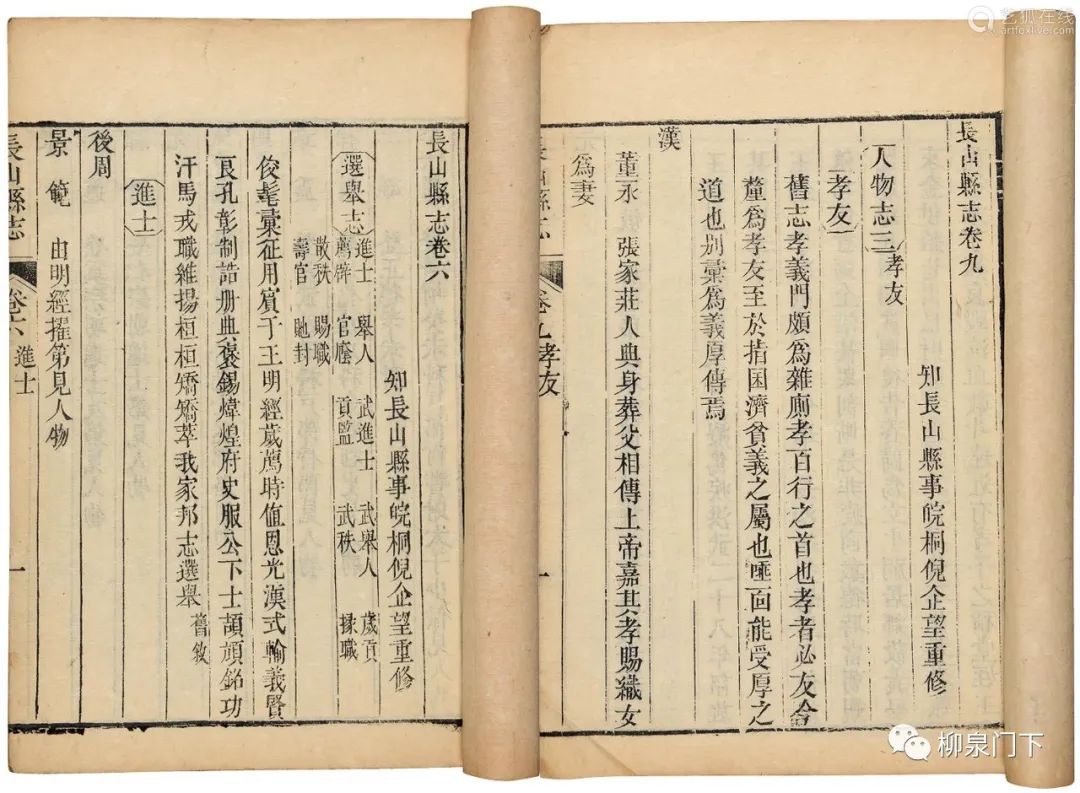 長山縣志卷九
知長山縣事皖桐倪企望重修
人物志三 孝友
孝友
舊志孝義門頗為雜廁孝百行之首也孝者必友合
釐為孝友至於指囷濟貧義之屬也匪囿能受厚之
道也別彙為義厚傳焉
漢
董永 張家莊人典身葬父相傳上帝嘉其孝賜織女
為妻
卷九 孝友
一
長山縣志卷六
知長山縣事皖桐倪企望重修
選舉志 進士 舉人 武進士 武舉人 歲貢
薦辟 官廕 貢監 武秩 掾職
散秩 賜職
壽官 貤封
俊髦彙征用賓于王明經歲薦時值恩光漢式輸義賢
良孔彰制誥册典褒錫煒煌府史服公下士頡頏銘功
汗馬戎職維揚桓桓矯矯萃我家邦志選舉 舊敘
進士
後周
景範 由明經擢第見人物
長山縣志
卷六 進士
一
艺狐在线
artfoxlive.com
柳泉门下